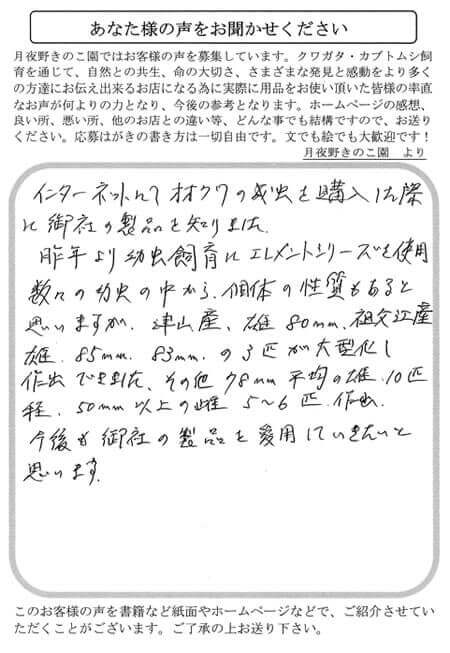 あなた様の声をお聞かせください
月夜野きのこ園ではお客様の声を募集しています。クワガタ・カブトムシ飼
育を通じて、自然との共生、命の大切さ、さまざまな発見と感動をより多く
の方達にお伝え出来るお店になる為に実際に用品をお使い頂いた皆様の率直
なお声が何よりの力となり、今後の参考となります。ホームページの感想、
良い所、悪い所、他のお店との違い等、どんな事でも結構ですので、お送り
ください。応募はがきの書き方は一切自由です。文でも絵でも大歓迎です！
月夜野きのこ園　より
インターネットにてオオクワの成虫を購入した際
に御社の製品を知りました。
昨年より幼虫飼育にエレメントシリーズを使用
数々の幼虫の中から、個体の性質もあると
思いますが、津山産、雄80mm、祖父江産
雄、85mm、83mm、の3匹が大型化し
作出できました、その他78mm平均の雄、10匹
程、50mm以上の雌5〜6匹、作出。
今後も御社の製品を愛用していきたいと
思います。
このお客様の声を書籍など紙面やホームページなどで、ご紹介させてい
ただくことがございます。ご了承の上お送り下さい。